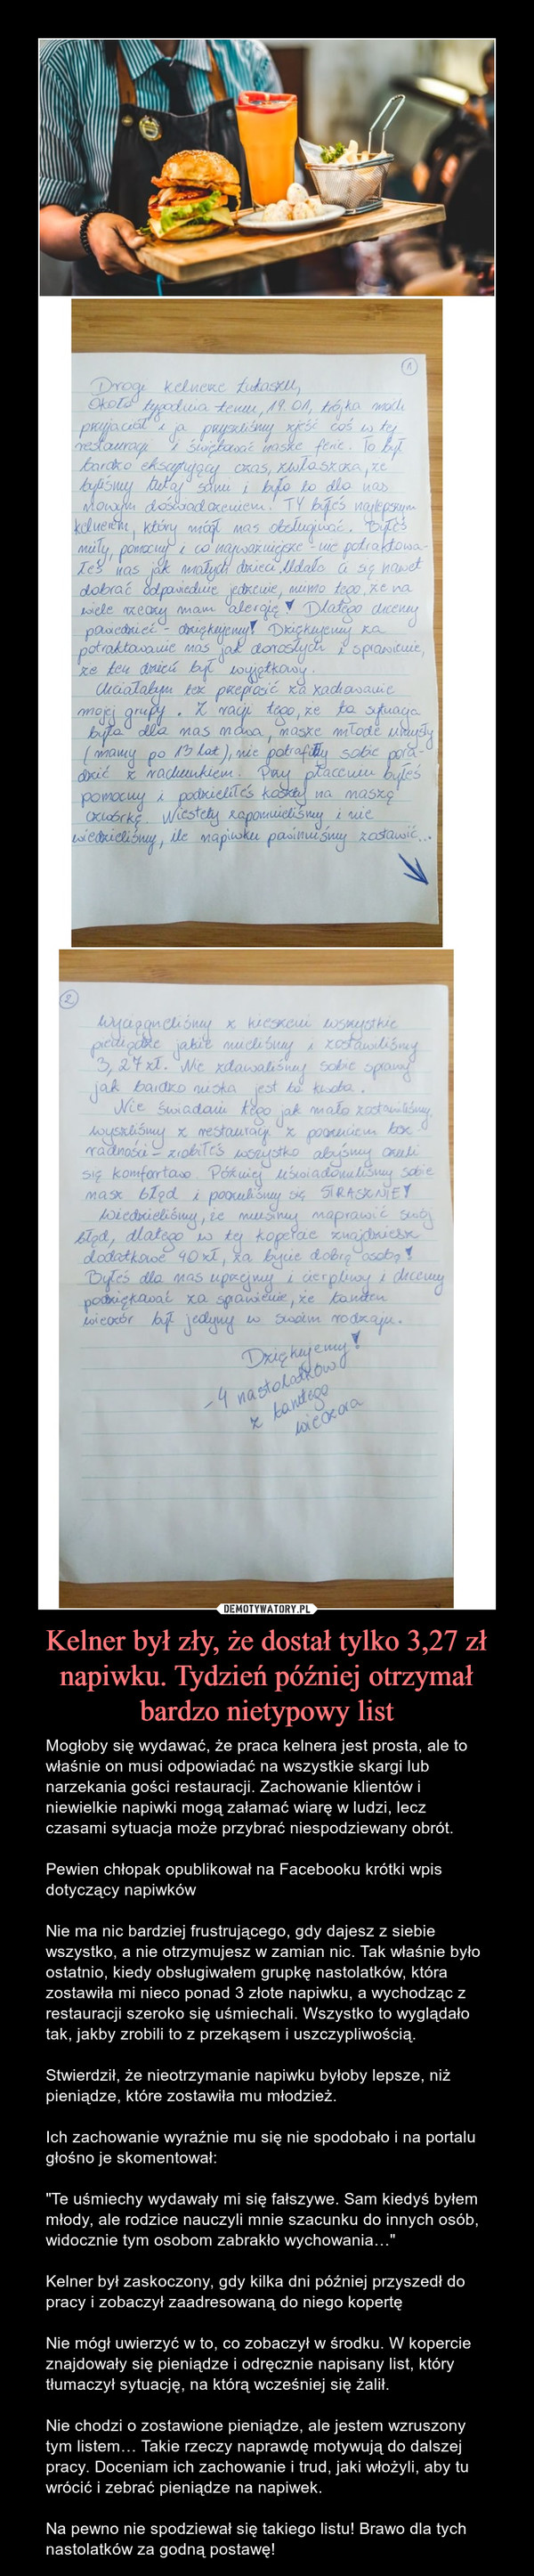 ①
Drogi kelnerze Łukaszu,
Około tygodnia temu, 19.01, trójka moich
przyjaciół i ja przyszliśmy zjeść coś w tej
restauracji i świętować nasze ferie. To był
bardzo ekscytujący czas, zwłaszcza, że
byliśmy tutaj sami i było to dla nas
nowym doświadczeniem. TY byłeś najlepszym
kelnerem, który mógł nas obsługiwać. Byłeś
miły, pomocny i co najważniejsze - nie potraktowa-
łeś nas jak małych dzieci. Udało Ci się nawet
dobrać odpowiednie jedzenie, mimo tego, że na
wiele rzeczy mam alergię! Dlatego chcemy
powiedzieć - dziękujemy! Dziękujemy za
potraktowanie nas jak dorosłych i sprawienie,
że ten dzień był wyjątkowy.
Chciałabym też przeprosić za zachowanie
mojej grupy. Z racji tego, że ta sytuacja
była dla nas nowa, nasze młode umysły
(mamy po 13 lat), nie potrafiły sobie pora-
dzić z rachunkiem. Przy płaceniu byłeś
pomocny i podzieliłeś koszty na naszą
czwórkę. Niestety zapomnieliśmy i nie
wiedzieliśmy, ile napiwku powinniśmy zostawić...
②
Wyciągnęliśmy z kieszeni wszystkie
pieniądze jakie mieliśmy i zostawiliśmy
3,27 zł. Nie zdawaliśmy sobie sprawy
jak bardzo niska jest ta kwota.
Nie świadomi tego jak mało zostawiliśmy,
wyszliśmy z restauracji z poczuciem
radności - zrobiłeś wszystko abyśmy czuli
się komfortowo. Później uświadomiliśmy sobie
nasz błąd i poczuliśmy się STRASZNIE!
Wiedzieliśmy, że musimy naprawić swój
błąd, dlatego w tej kopercie znajdziesz
dodatkowe 40 zł, za bycie dobrą osobą!
Byłeś dla nas uprzejmy i cierpliwy i chcemy
podziękować za sprawienie, że tamten
wieczór był jedyny w swoim rodzaju.
Dziękujemy!
- 4 nastolatków
z tamtego
wieczora
DEMOTYWATORY.PL
Kelner był zły, że dostał tylko 3,27 zł
napiwku. Tydzień później otrzymał
bardzo nietypowy list
Mogłoby się wydawać, że praca kelnera jest prosta, ale to
właśnie on musi odpowiadać na wszystkie skargi lub
narzekania gości restauracji. Zachowanie klientów i
niewielkie napiwki mogą załamać wiarę w ludzi, lecz
czasami sytuacja może przybrać niespodziewany obrót.
Pewien chłopak opublikował na Facebooku krótki wpis
dotyczący napiwków
Nie ma nic bardziej frustrującego, gdy dajesz z siebie
wszystko, a nie otrzymujesz w zamian nic. Tak właśnie było
ostatnio, kiedy obsługiwałem grupkę nastolatków, która
zostawiła mi nieco ponad 3 złote napiwku, a wychodząc z
restauracji szeroko się uśmiechali. Wszystko to wyglądało
tak, jakby zrobili to z przekąsem i uszczypliwością.
Stwierdził, że nieotrzymanie napiwku byłoby lepsze, niż
pieniądze, które zostawiła mu młodzież.
Ich zachowanie wyraźnie mu się nie spodobało i na portalu
głośno je skomentował:
"Te uśmiechy wydawały mi się fałszywe. Sam kiedyś byłem
młody, ale rodzice nauczyli mnie szacunku do innych osób,
widocznie tym osobom zabrakło wychowania…"
Kelner był zaskoczony, gdy kilka dni później przyszedł do
pracy i zobaczył zaadresowaną do niego kopertę
Nie mógł uwierzyć w to, co zobaczył w środku. W kopercie
znajdowały się pieniądze i odręcznie napisany list, który
tłumaczył sytuację, na którą wcześniej się żalił.
Nie chodzi o zostawione pieniądze, ale jestem wzruszony
tym listem… Takie rzeczy naprawdę motywują do dalszej
pracy. Doceniam ich zachowanie i trud, jaki włożyli, aby tu
wrócić i zebrać pieniądze na napiwek.
Na pewno nie spodziewał się takiego listu! Brawo dla tych
nastolatków za godną postawę!